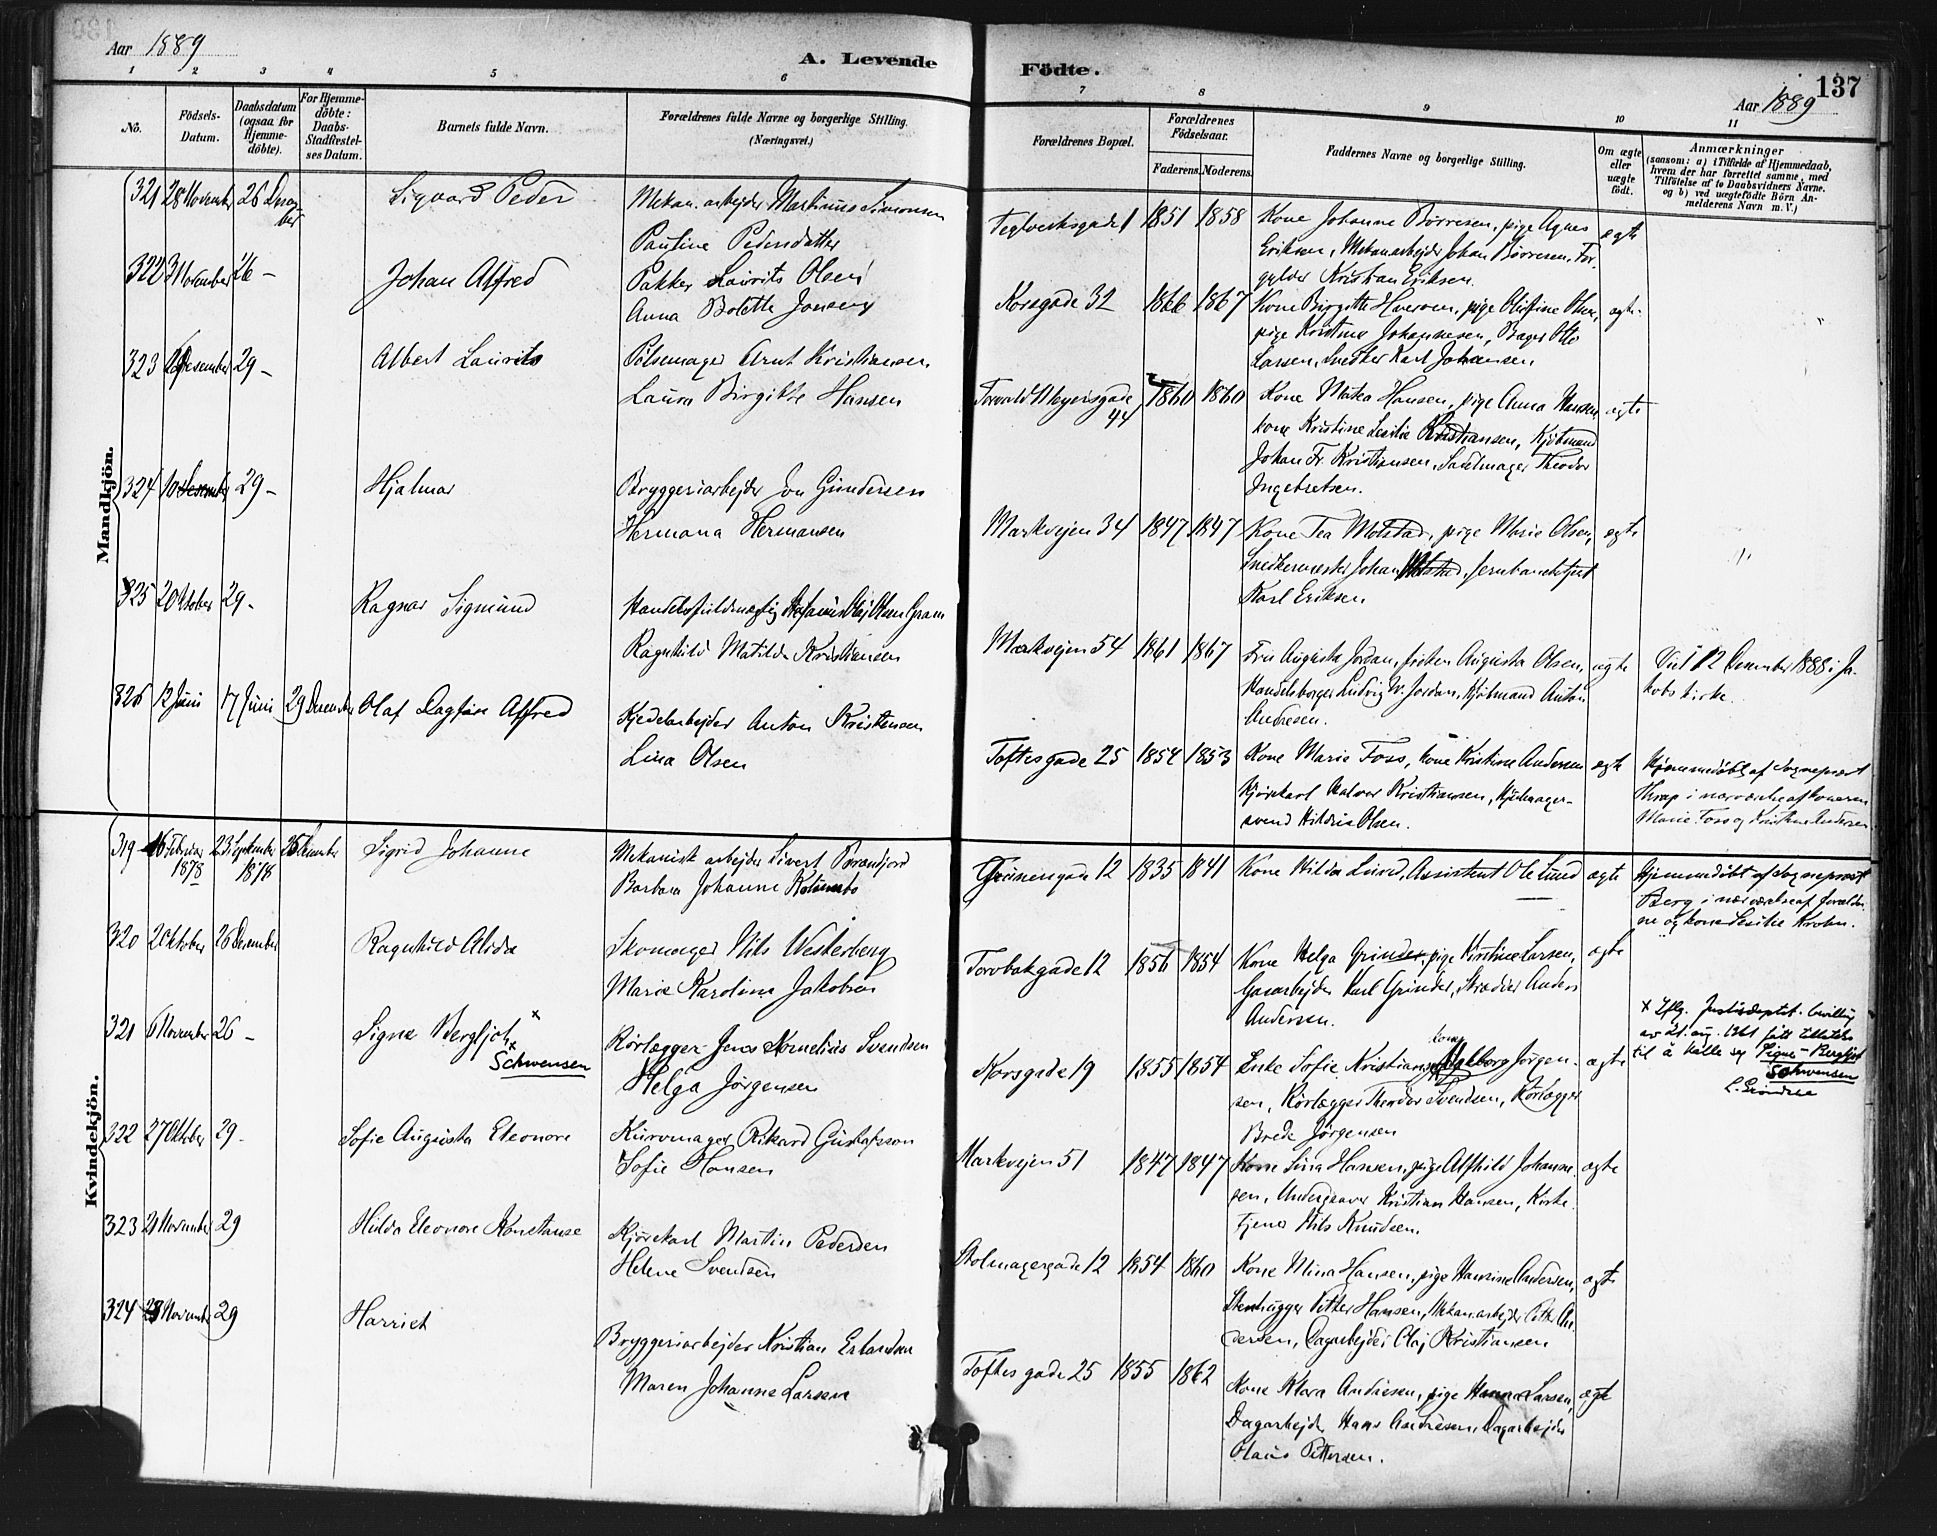 Aar 1889
A. Levende
Födte.
137
Aar 1889
1 2 3 4 5 6 7 8 9 10 11
No.
Födsels-Datum.
Daabsdatum (ogsaa for Hjemme-döbte).
For Hjemme-döbte: Daabs-Stadfæstel-ses Datum.
Barnets fulde Navn.
Forældrenes fulde Navne og borgerlige Stilling.
(Næringsvei.)
Forældrenes Bopæl.
Forældrenes Födselsaar.
Faderens. Moderens.
Faddernes Navne og borgerlige Stilling.
Om ægte eller uægte födt.
Anmærkninger
(saasom: a) i Tilfælde af Hjemmedaab, hvem der har forrettet samme, med Tilföielse af to Daabsvidners Navne. og b) ved uægtefödte Börn An-melderens Navn m. V.)
Mandkjön.
321 28 November 26 Desember Sigvard Peder
Mekan. arbejder Martinus Simonsen
Pauline Pedersdatter
Teglverksgade 1 1851 1858
Kone Johanne Börresen, pige Agnes
Eriksen, Mekanarbejder Johan Börresen, For-
gylder Kristian Eriksen.
ægte
322 3 November 26 – Johan Alfred
Pakker Laurits Olsen
Anna Bolette Jonsen
Korsgade 32 1866 1867
Kone Birgitte Halvorsen, pige Olefine Olsen,
pige Kristine Johannesen, Bager Otto
Larsen, Snedker Karl Johansen
ægte
323 Desember 29 – Albert Laurits
Pölsemager Arnt Kristiansen
Laura Birgitte Hansen
Torvald Meyersgade 44 1860 1860
Kone Matea Hansen, pige Anna Hansen
kone Kristine Lesilie Kristiansen, Kjötmand
Johan Fr. Kristiansen, Sadelmager Theodor
Ingebretsen.
ægte
324 10 Desember 29 – Hjalmar
Bryggeriarbejder Jon Gundersen
Hermana Hermansen
Markvejen 34 1847 1847
Kone Tea Molstad, pige Marie Olsen,
Snedkermester Johan Molstad, Jernbanebetjent
Karl Eriksen
ægte
325 2 Oktober 29 – Ragnar Sigmund
Handelsfuldmægtig Olaf Olsen Gram
Ragnhild Matilde Kristiansen
Markvejen 54 1861 1867
Fru Augusta Jordan, fröken Augusta Olsen,
Handelsborger Ludvig W. Jordan, Kjöbmand Anton
Andresen.
ægte
Viet 12 Desember 1888 i Ja-
kobs kirke.
326 12 Juni 17 Juni 29 Desember Olaf Dagfin Alfred
Kjedelarbejder Anton Kristensen
Lina Olsen
Toftesgade 25 1854 1853
Kone Marie Foss, kone Kristine Andersen
Kjörekarl Halvor Kristiansen, Kjedelmager-
svend Hildris Olsen.
ægte
Hjemmedöbt af Sogneprest
Thrap i nærværelse af konerne
Marie Foss og Kristine Andersen
Kvindekjön.
319 16 Februar 1878 23 September 1878 26 Desember Sigrid Johanne
Mekanisk arbejder Sivert
Barbara Johanne
Grünersgade 12 1835 1841
Kone Hilda Lund, Assistent Ole Lund
ægte
Hjemmedöbt af Sogneprest
Berg i nærværelse af forældre-
ne og kone Lesilie Krohn.
320 2 Oktober 26 Desember Ragnhild Alvida
Skomager Nils Westerberg
Marie Karoline Jakobsen
Torvbakgade 12 1856 1854
Kone Helga Grinder, pige Kirstine Larsen,
Gasarbejder Karl Grinder, Skrædder Anders
Andersen.
ægte
321 6 November 26 – Signe Bergljot x
x Schwensen
Rörlægger Jens Kornelius Svendsen
Helga Jörgensen
Korsgade 19 1855 1854
Enke Sofie Kristiansen, kone Valborg Jörgen-
sen, Rörlægger Theodor Svendsen, Rörlægger
Brede Jörgensen
ægte
x Iflg. Justisdeptet. bevilling
av 21. aug. 1961 fått tillatelse
til å kalle seg Signe-Bergljot
Schwensen
322 27 Oktober 29 – Sofie Augusta Eleonore
Kurvmager Rikard Gustafsson
Sofie Hansen
Markvejen 51 1847 1847
Kone Lina Hansen, pige Alfhild Johanne-
sen, Undergaver Kristian Hansen, Kirke-
tjener Nils Knudsen.
ægte
323 21 November 29 Hilda Eleonore Konstanse
Kjörekarl Martin Pedersen
Helene Svendsen
Stolmagergade 12 1854 1860
Kone Mina Hansen, pige Hansine Andersen,
Stenhugger Petter Hansen, Mekan. arbejder Petter An-
dersen, Dagarbejder Olaj Kristiansen
ægte
324 23 November 29 Harriet
Bryggeriarbejder Kristian Erlandsen
Maren Johanne Larsen
Toftes gade 25 1855 1862
Kone Klara Andresen, pige Hanna Larsen,
Dagarbejder Hans Andresen, Dagarbejder
Olaus Pettersen.
ægte